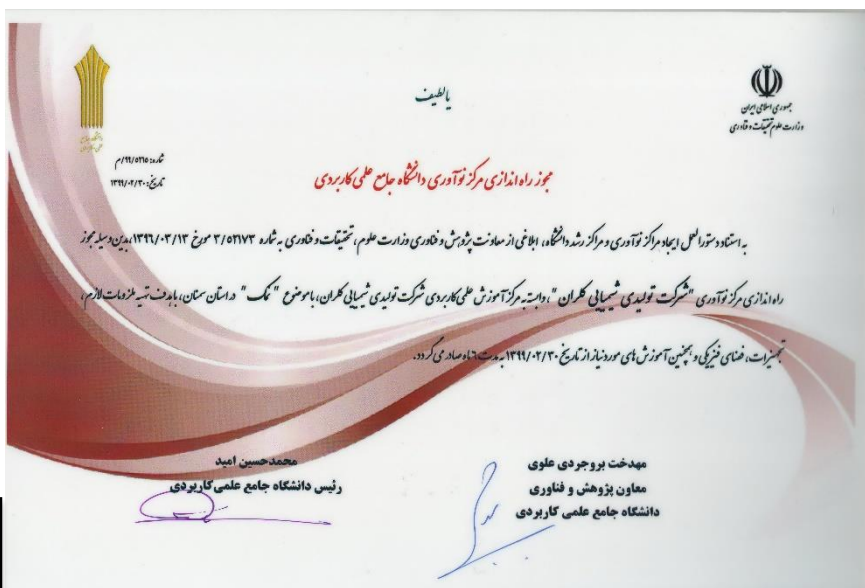 جمهوری اسلامی ایران
وزارت علوم تحقیقات و فناوری
یا لطیف
دانشگاه جامع
علمی کاربردی
شماره: ۹۹/۵۲۱۵/م
تاریخ: ۱۳۹۹/۰۲/۳۰
مجوز راه اندازی مرکز نوآوری دانشگاه جامع علمی کاربردی
به استناد دستورالعمل ایجاد مراکز نوآوری و مراکز رشد دانشگاه، ابلاغی از معاونت پژوهش و فناوری وزارت علوم، تحقیقات و فناوری به شماره ۳/۵۲۱۷۳ مورخ ۱۳۹۶/۰۳/۱۳، بدین وسیله مجوز
راه اندازی مرکز نوآوری "شرکت تولیدی شیمیایی کلران"، وابسته به مرکز آموزش علمی کاربردی شرکت تولیدی شیمیایی کلران، با موضوع "نمک" در استان سمنان، با هدف تهیه ملزومات لازم،
تجهیزات، فضای فیزیکی و همچنین آموزش های مورد نیاز از تاریخ ۱۳۹۹/۰۲/۳۰ به مدت ۶ ماه صادر می گردد.
مهدخت بروجردی علوی
معاون پژوهش و فناوری
دانشگاه جامع علمی کاربردی
محمدحسین امید
رئیس دانشگاه جامع علمی کاربردی